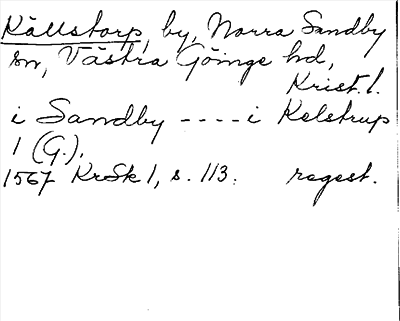 Källstorp, by, Norra Sandby
sn, Västra Göinge hd,
Krist. l.
i Sandby ---- i Kelstrup
1 (G.).
1567 KrSk 1, s. 113. regest.